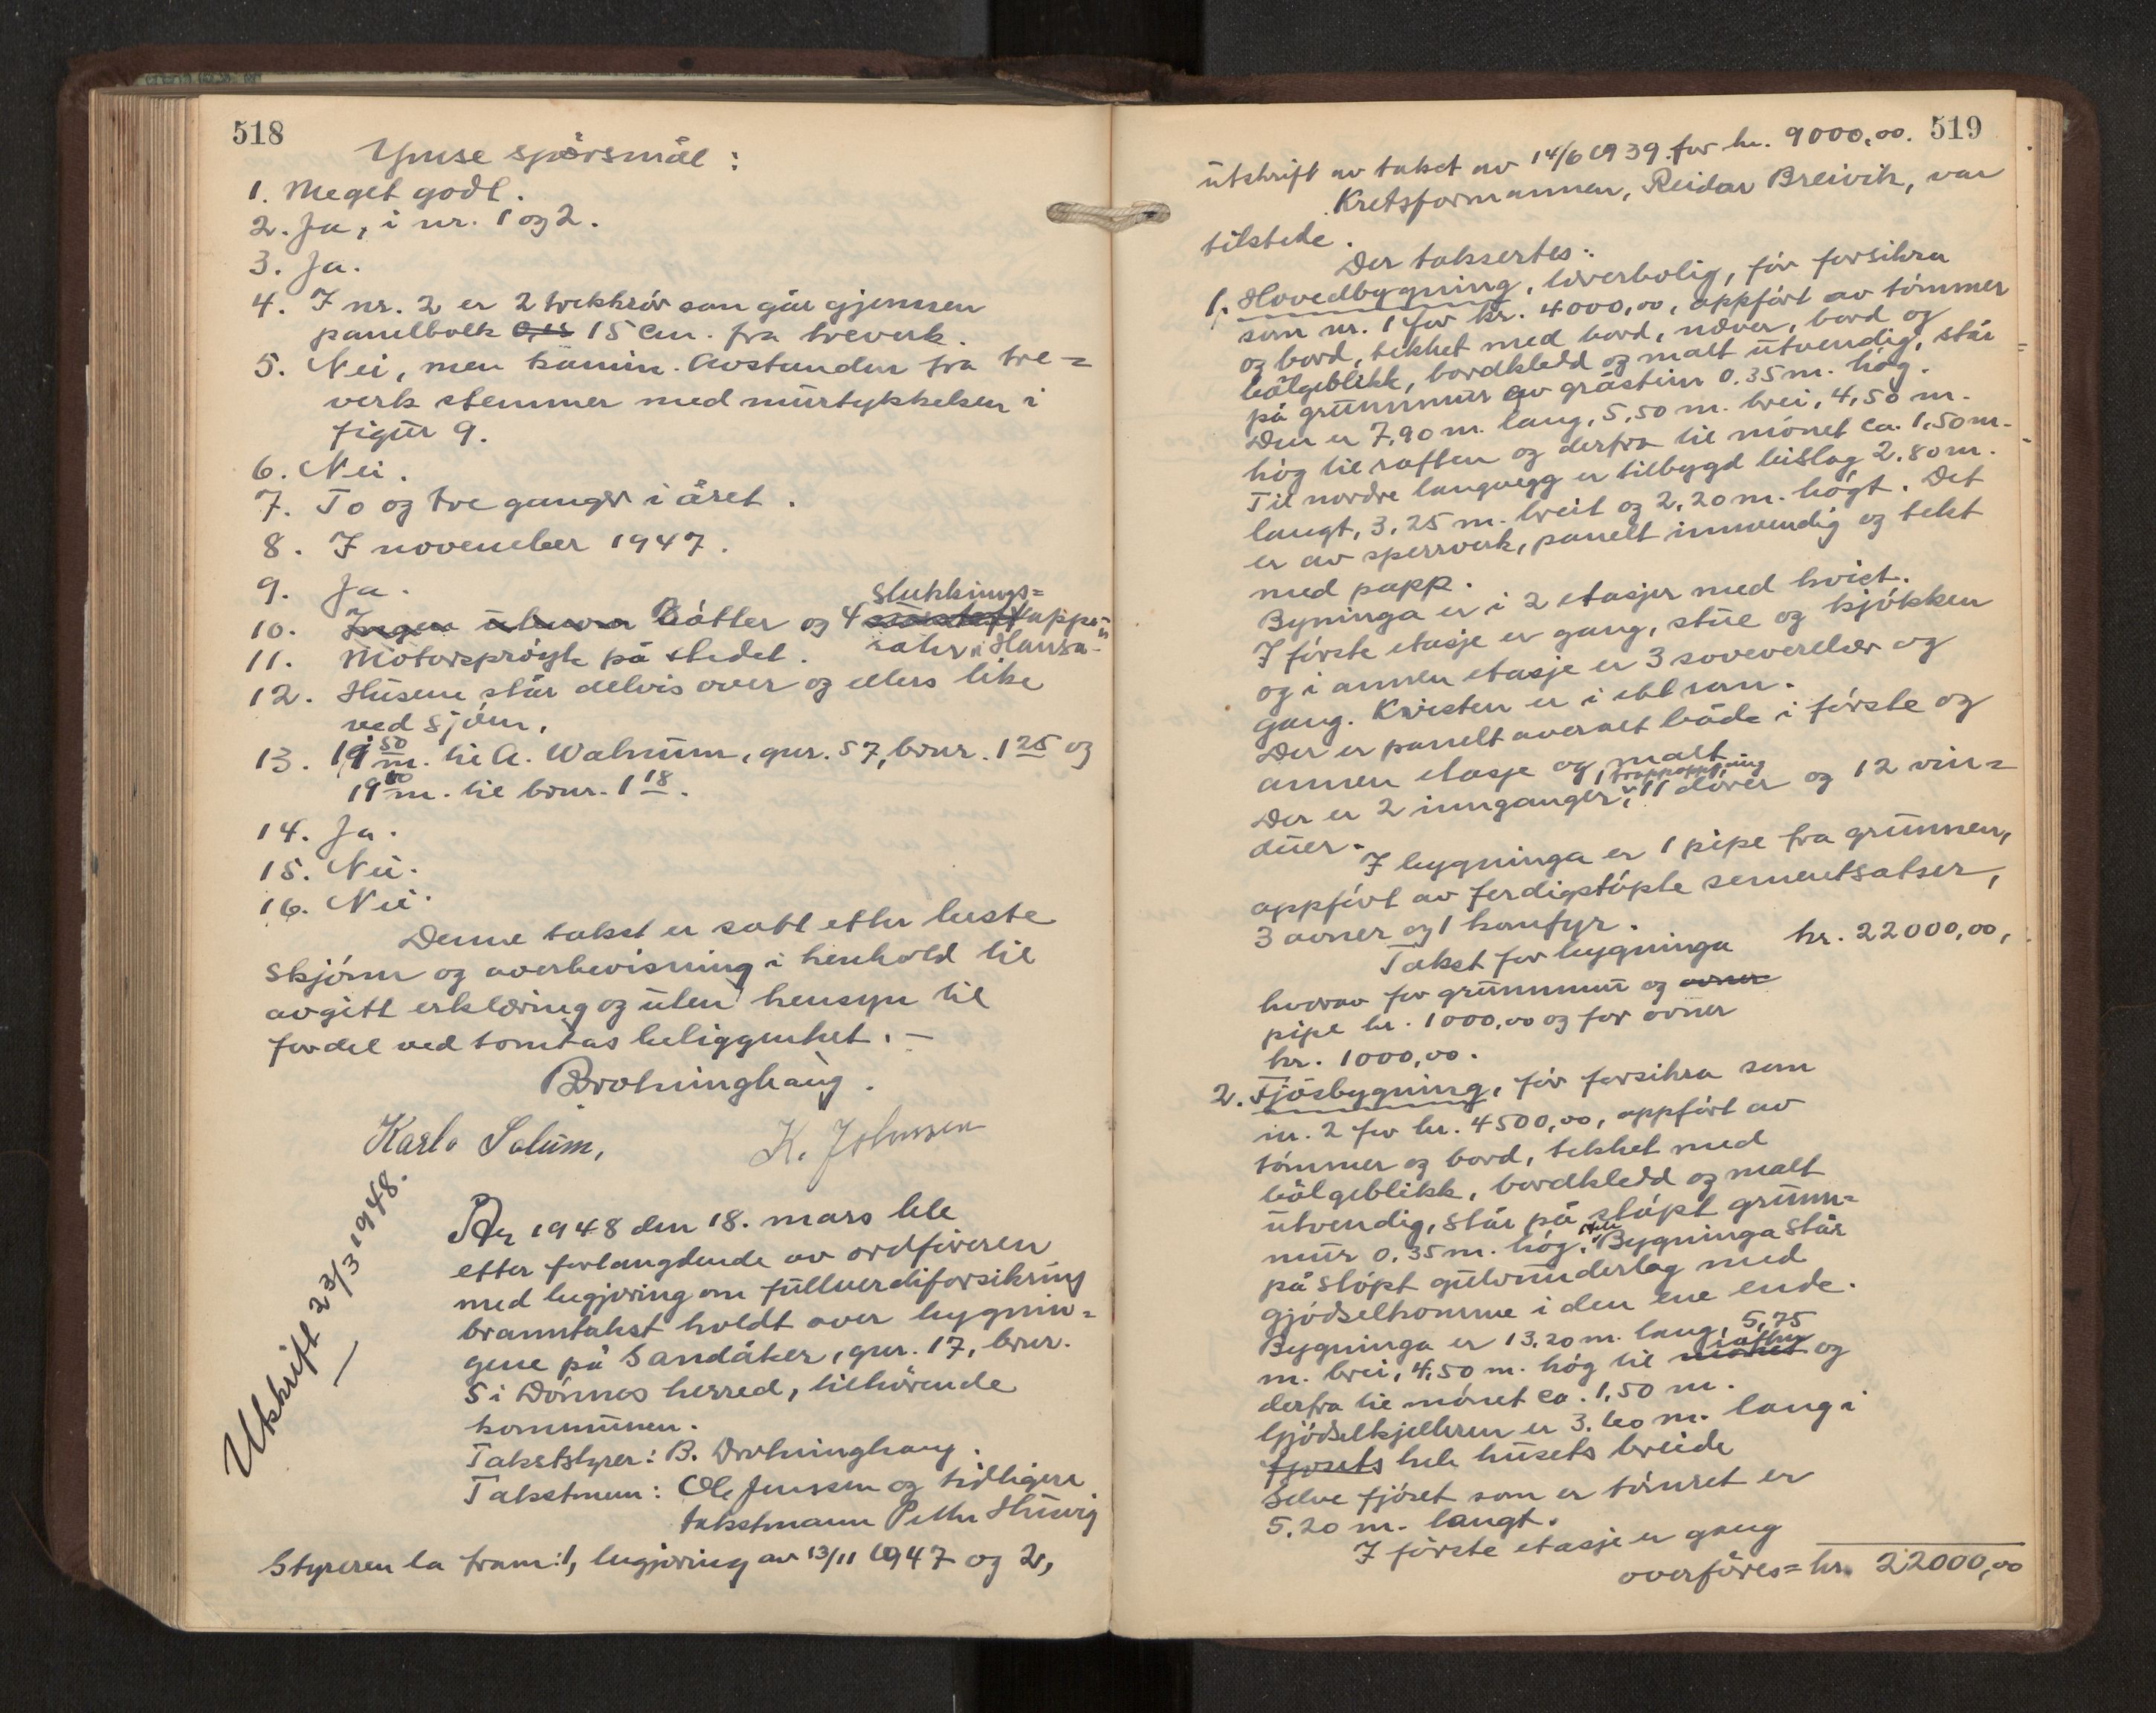 518
Ymse spørsmål:
1. Meget godt.
2. Ja, i nr. 1 og 2.
3. Ja.
4. I nr. 2 er 2 trekkrør som går gjennem
panelbolk 0,15 15 cm. fra treverk.
5. Nei, men kamin. Avstanden fra tre=
verk stemmer med murtykkelsen i
figur 9.
6. Nei.
7. To og tre ganger i året.
8. I november 1947.
9. Ja.
slukkings=
10. Ingen utenom Bøtter og 4 appa=
11. Motorsprøyte på stedet. rater "Hansa"
12. Husene står delvis over og ellers like
ved sjøen.
13. 19 50 m. til A. Walnum, gnr. 57, bnr. 1 25 og
19 m. til bnr. 1 18.
14. Ja.
15. Nei.
16. Nei.
Denne takst er satt etter beste
skjønn og overbevisning i henhold til
avgitt erklæring og uten hensyn til
fordel ved tomtas beliggenhet. —
Drotninghaug.
Karlo Solum, K. Johnsen
Utskrift 23/3 1948.
År 1948 den 18. mars ble
etter forlangende av ordføreren
med begjæring om fullverdiforsikring
branntakst holdt over bygnin=
gene på Sandåker, gnr. 17, bnr.
5 i Dønnes herred, tilhørende
kommunen.
Takststyrer: B. Drotninghaug.
Takstmenn: Ole Jenssen og tidligere
takstmann Petter Husvig
Styreren la fram: 1, begjæring av 13/11 1947 og 2,
519
utskrift av takst av 14/6 1939 for kr. 9000,00.
Kretsformannen, Reidar Breivik, var
tilstede.
Der taksertes:
1. Hovedbygning, lærerbolig, før forsikra
som nr. 1 for kr. 4000,00, oppført av tømmer
og bord, tekket med bord, never, bord og
bølgeblikk, bordkledd og malt utvendig, står
på grunnmur av gråstein 0.35 m. høg.
Den er 7,90 m. lang, 5,50 m. brei, 4,50 m.
høg til raften og derfra til mønet ca. 1,50 m.
Til nordre langvegg er tilbygd bislag 2.80 m.
langt, 3,25 m. breit og 2,20 m. høgt. Det
er av sperrverk, panelt innvendig og tekt
med papp.
Byninga er i 2 etasjer med kvist.
I første etasje er gang, stue og kjøkken
og i annen etasje er 3 soveværelser og
gang. Kvisten er i ett rom.
Der er panelt overalt både i første og
annen etasje og malt.
trappoppgning
Der er 2 innganger, 1 11 dører og 12 vin=
duer.
I bygninga er 1 pipe fra grunnen,
oppført av ferdigstøpte sementsatser,
3 ovner og 1 komfyr.
Takst for bygninga kr. 22000,00,
hvorav for grunnmur og ovner
pipe kr. 1000,00 og for ovner
kr. 1000,00.
2. Fjøsbygning, før forsikra som
nr. 2 for kr. 4500,00, oppført av
tømmer og bord, tekket med
bølgeblikk, bordkledd og malt
utvendig, står på støpt grunn=
mur 0.35 m. høg. Hele Bygninga står
på støpt gulvunderlag med
gjødselkomme i den ene ende.
Bygninga er 13,20 m. lang, 5,75
m. brei, 4,50 m. høg til mønet raften og
derfra til mønet ca. 1,50 m.
Gjødselkjelleren er 3.60 m. lang i
fjosets hele husets breide
Selve fjøset som er tømret er
5.20 m. langt.
I første etasje er gang
overføres= kr. 22000,00